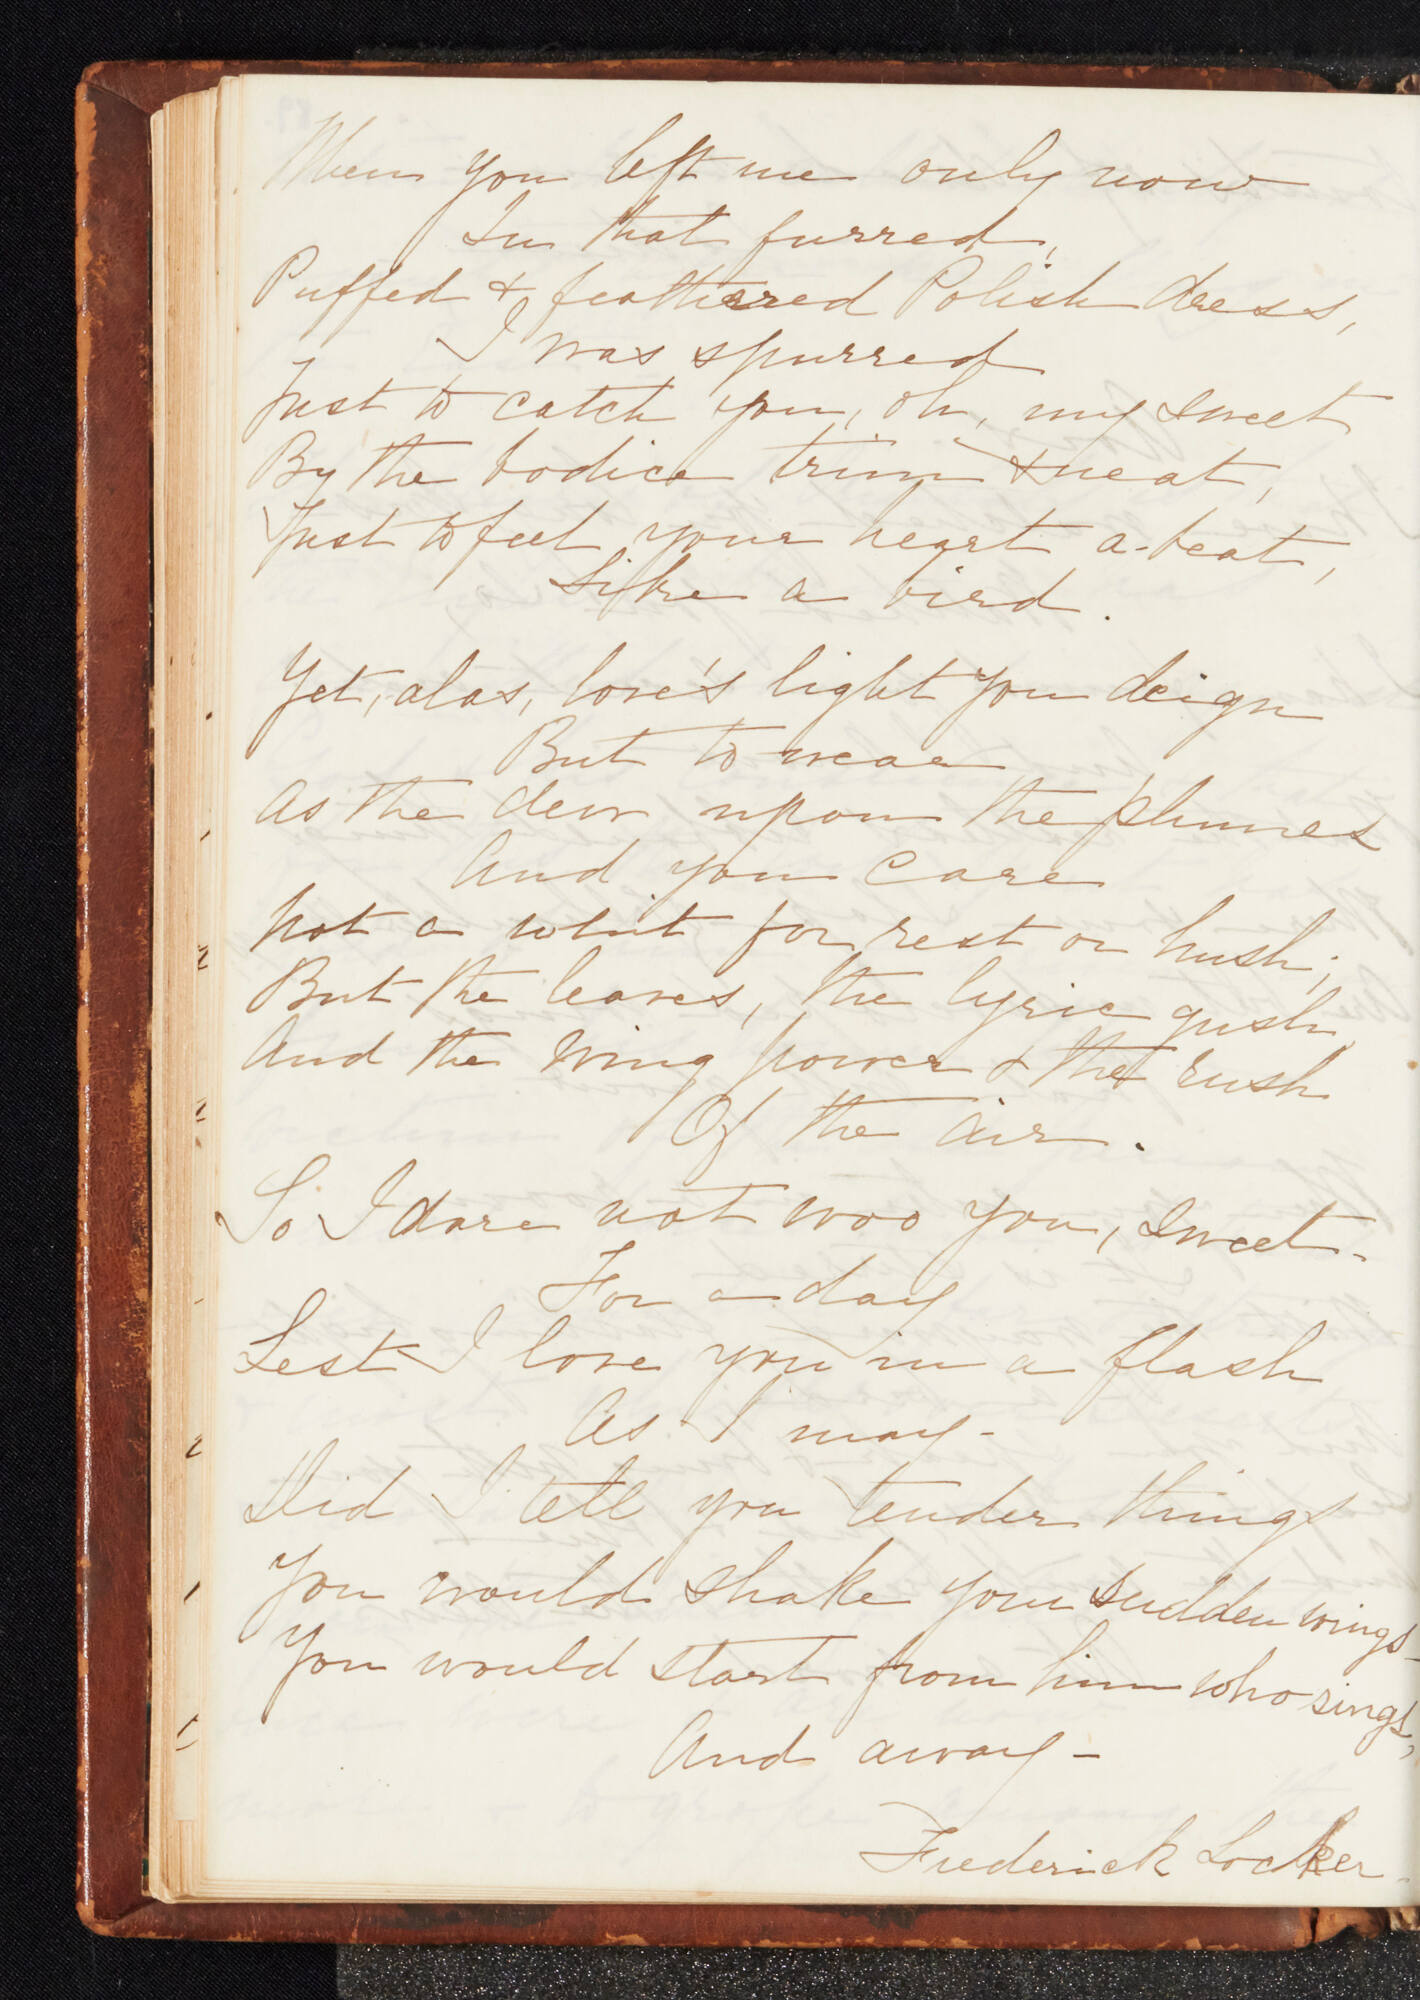 When you left me only now
In that furred,
Puffed & feathered Polish dress,
I was spurred
Just to catch you, oh, my sweet
By the bodice trim & neat,
Just to feel your heart a-beat,
Like a bird.
Yet, alas, love's light you deign
But to wear
As the dew upon the plumes
And you care
Not a whit for rest or hush;
But the leaves, the lyric gush,
And the wing power & the rush
Of the air.
So I dare not woo you, sweet-
For a day
Lest I lose you in a flash
As I may-
Did I tell you tender things
You would shake your sudden wings-
You would start from him who sings,
And away-
Frederick Locker.